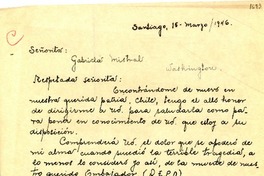 1693
C
Santiago, 15. Marzo/1946.
Señorita:
Gabriela Mistral
Washington.
Respetada señorita:
Encontrándome de nuevo en
nuestra querida patria, Chile, tengo el alto honor
de dirigirme a Ud. para saludarla como pa
ra poner en conocimiento de Ud. que estoy a su
disposición.
Comprenderá Ud. el dolor que se apoderó de
mi alma cuando sucedió la terrible tragedia, a
lo menos lo considero yo así, de la muerte de nues
tro querido Embajador (D.E.P.D)